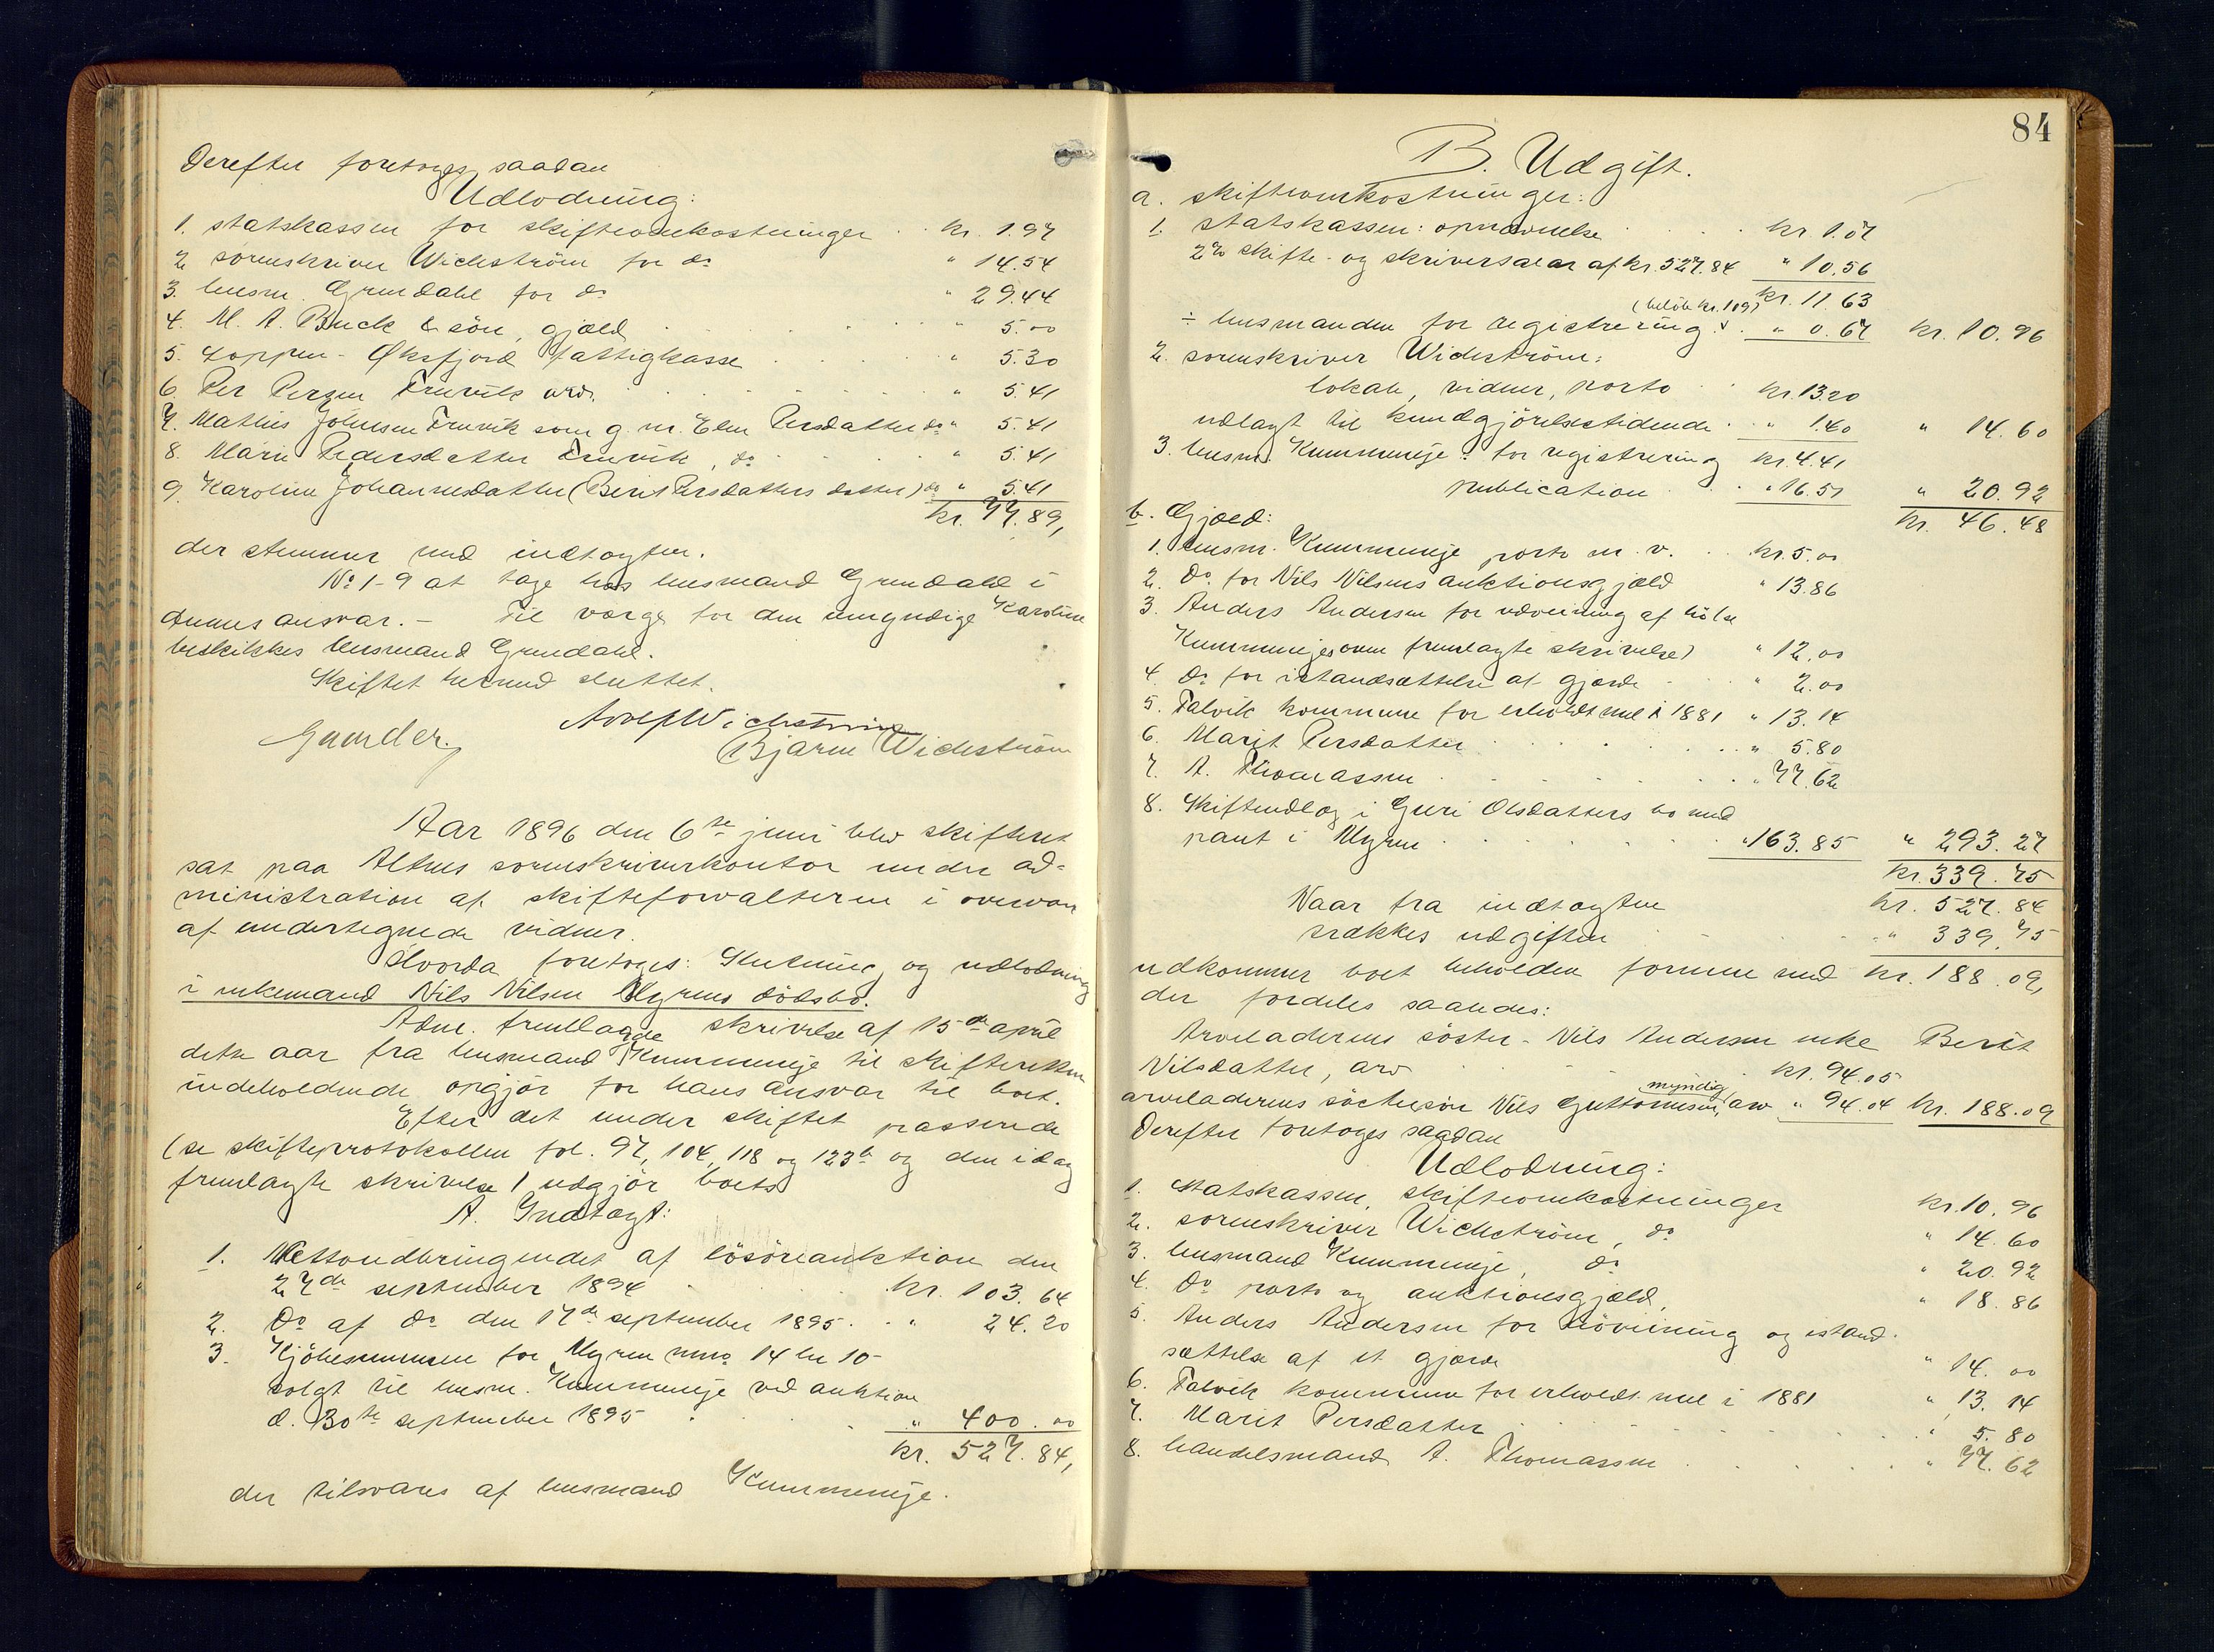 Derefter foretoges saadan
Udlodning:
1. statskassen for skifteomkostninger . . kr. 1.97
2. sorenskriver Wickström for do " 14.54
3. lensm. Grundahl for do " 29.44
4. M. A. Buck & sön, gjæld . . . " 5.00
5. Loppen-Øksfjord fattigkasse . . . " 5.30
6. Per Persen Fruvik arv. . . . " 5.41
7. Mathis Johnsen Fruvik som g. m. Elen Persdatter do " 5.41
8. Marie Pedersdatter Fruvik, do . . . " 5.41
9. Karoline Johannesdatter (Berit Persdatters datter) do " 5.41
kr. 77.89,
der stemmer med indtægten.
No 1-9 at tage hos lensmand Grundahl i
dennes ansvar. — Til værge for den umyndige Karoline
beskikkes lensmand Grundahl.
Skiftet hermed sluttet.
Adolf Wickström
Gunder.
Bjarne Wickström
Aar 1896 den 6te juni blev skifteret
sat paa Altens sorenskriverkontor under ad-
ministration af skifteforvalteren i overvær
af undertegnede vidner.
Hvorda foretoges: Slutning og udlodning
i enkemand Nils Nilsen Myrens dödsbo.
Adm. fremlagde skrivelse af 15de april
dette aar fra lensmand Kummeneje til skifteretten
indeholdende opgjör for hans ansvar til boet.
Efter det under skiftet passerede
(se skifteprotokollen fol. 97, 104, 118 og 123b og den idag
fremlagte skrivelse) udgjör boets
A. Indtægt:
1. Nettoudbringendet af lösöreauktion den
27de september 1894 . . kr. 103.64
2. Do af do den 17de september 1895 . . " 24.20
3. Kjöbesummen for Myren mno 14 br 10 -
solgt til lensm. Kummeneje ved auktion
d. 30te september 1895 . . . " 400.00
kr. 527.84,
der tilsvares af lensmand Kummeneje.
84
B. Udgift.
a. skifteomkostninger:
1. statskassen: opnævnelse . . . kr. 1.07
2% skifte- og skriversalær af kr. 527.84 " 10.56
kr. 11.63
(beløb kr. 109)
÷ lensmanden for registrering . " 0.67 kr. 10.96
2. sorenskriver Wickström:
lokale, vidner, porto . . kr. 13.20
udlagt til kundgjörelsestidende . . " 1.40 " 14.60
3. lensm. Kummeneje: for registrering kr. 4.41
publication . . " 16.51 " 20.92
kr. 46.48
b. Gjæld:
1. lensm. Kummeneje porto m. v. . . kr. 5.00
2. Do for Nils Nilsens auktionsgjæld " 13.86
3. Anders Andersen for udveining af hö (se
Kummenejes oven fremlagte skrivelse) " 12.00
4. Do for istandsættelse af gjærde . " 2.00
5. Talvik kommune for erholdt mel i 1881 " 13.14
6. Marit Persdatter . . . " 5.80
7. A. Thomassen . . . " 77.62
8. Skifteudlæg i Guri Olsdatters bo med
pant i Myren . . . " 163.85 " 293.27
kr. 339.75
Naar fra indtægten kr. 527.84
trækkes udgiften . . . " 339.75
udkommer boet beholden formue med kr. 188.09,
der fordeles saaledes:
Arveladerens söster - Nils Andersen enke Berit
Nilsdatter, arv . . . kr. 94.05
myndig
arveladerens söstersön Nils Guttormsen, arv " 94.04 kr. 188.09
Derefter foretoges saadan
Udlodning:
1. Statskassen, skifteomkostninger kr. 10.96
2. sorenskriver Wickström, do " 14.60
3. lensmand Kummeneje, do " 20.92
4. Do porto og auktionsgjæld, " 18.86
5. Anders Andersen for höveining og istand-
sættelse af et gjærde " 14.00
6. Talvik kommune for erholdt mel i 1881 " 13.14
7. Marit Persdatter . . . " 5.80
8. handelsmand A. Thomassen . . . " 77.62